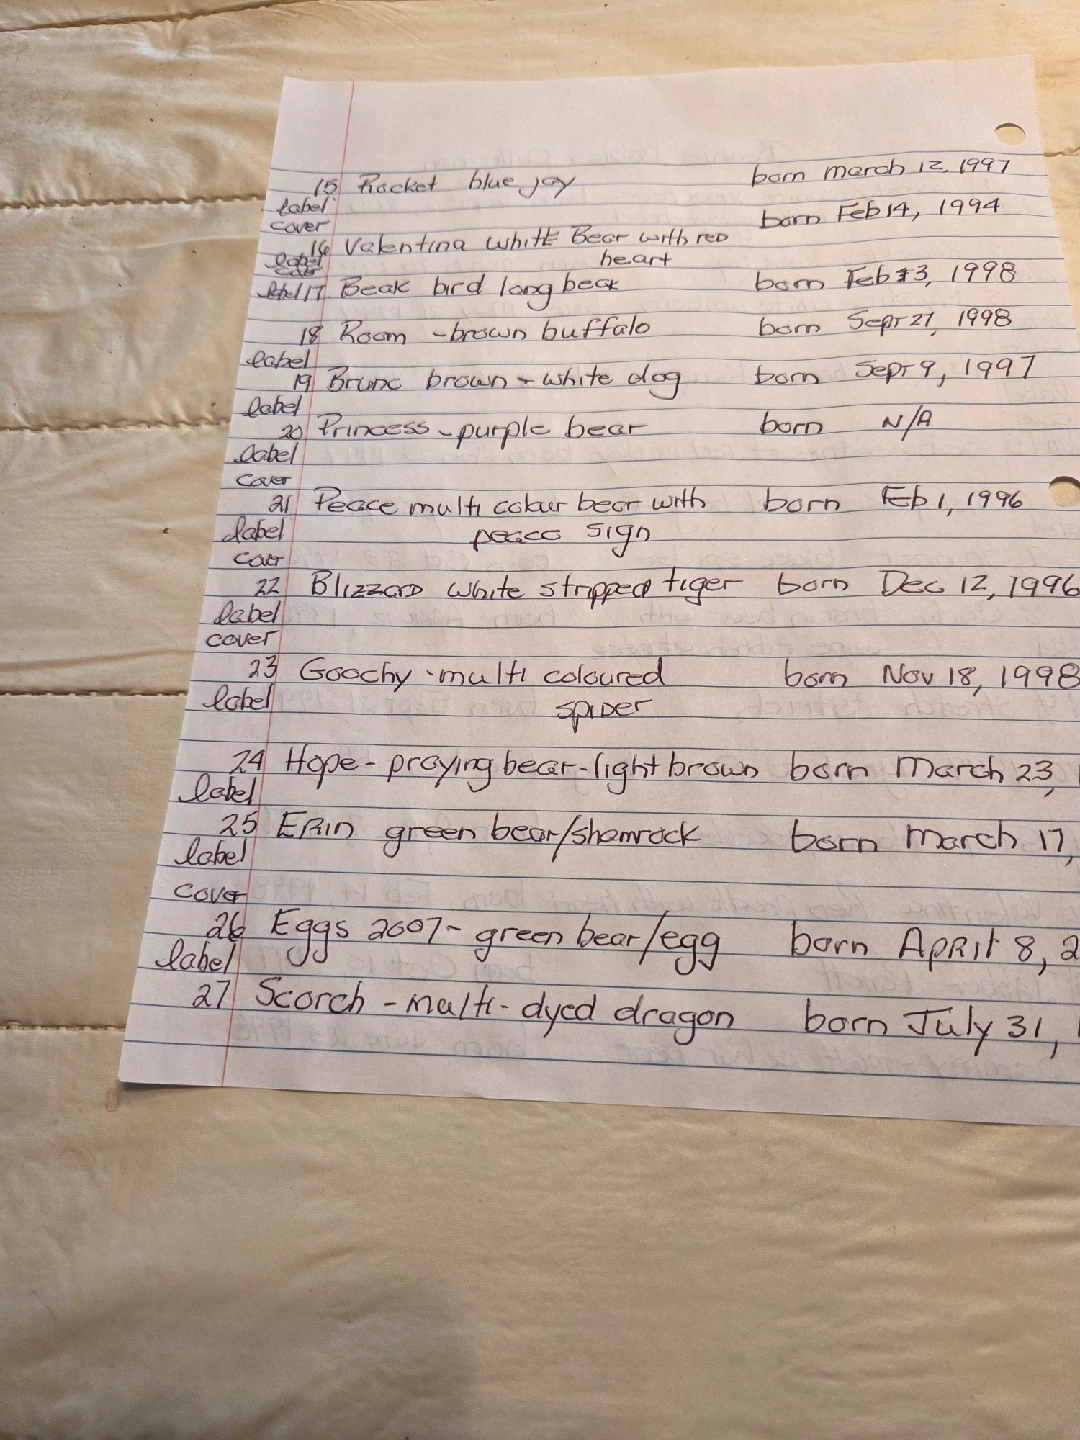 15 Rocket blue jay born march 12, 1997
label
cover born Feb 14, 1994
16 Valentina white Bear with red
label heart
label 17 Beak bird long beak born Feb 3, 1998
18 Roam - brown buffalo born Sept 27, 1998
label
19 Bruno brown + white dog born Sept 9, 1997
label
20 Princess - purple bear born N/A
label
cover
21 Peace multi colour bear with born Feb 1, 1996
label peace sign
cover
22 Blizzard white stripped tiger born Dec 12, 1996
label
cover
23 Goochy - multi coloured born Nov 18, 1998
label spider
24 Hope - praying bear - light brown born March 23,
label
25 ERin green bear/shamrock born March 17,
label
cover
26 Eggs 2007 - green bear/egg born April 8, 2
label
27 Scorch - multi - dyed dragon born July 31,